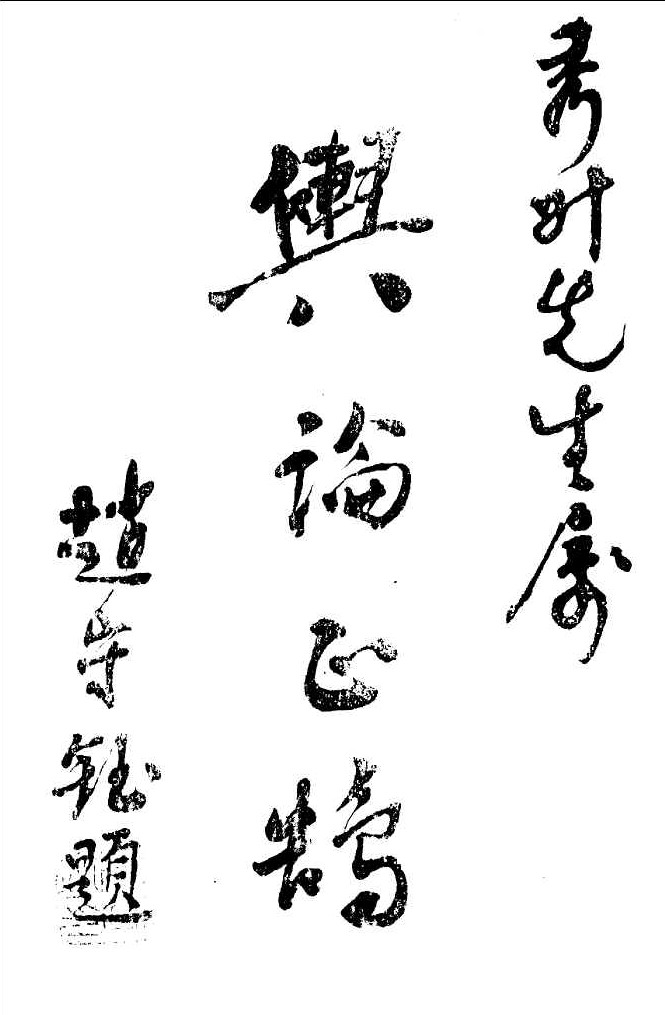 秀叶先生屬
輿論正鵠
趙守鈺題